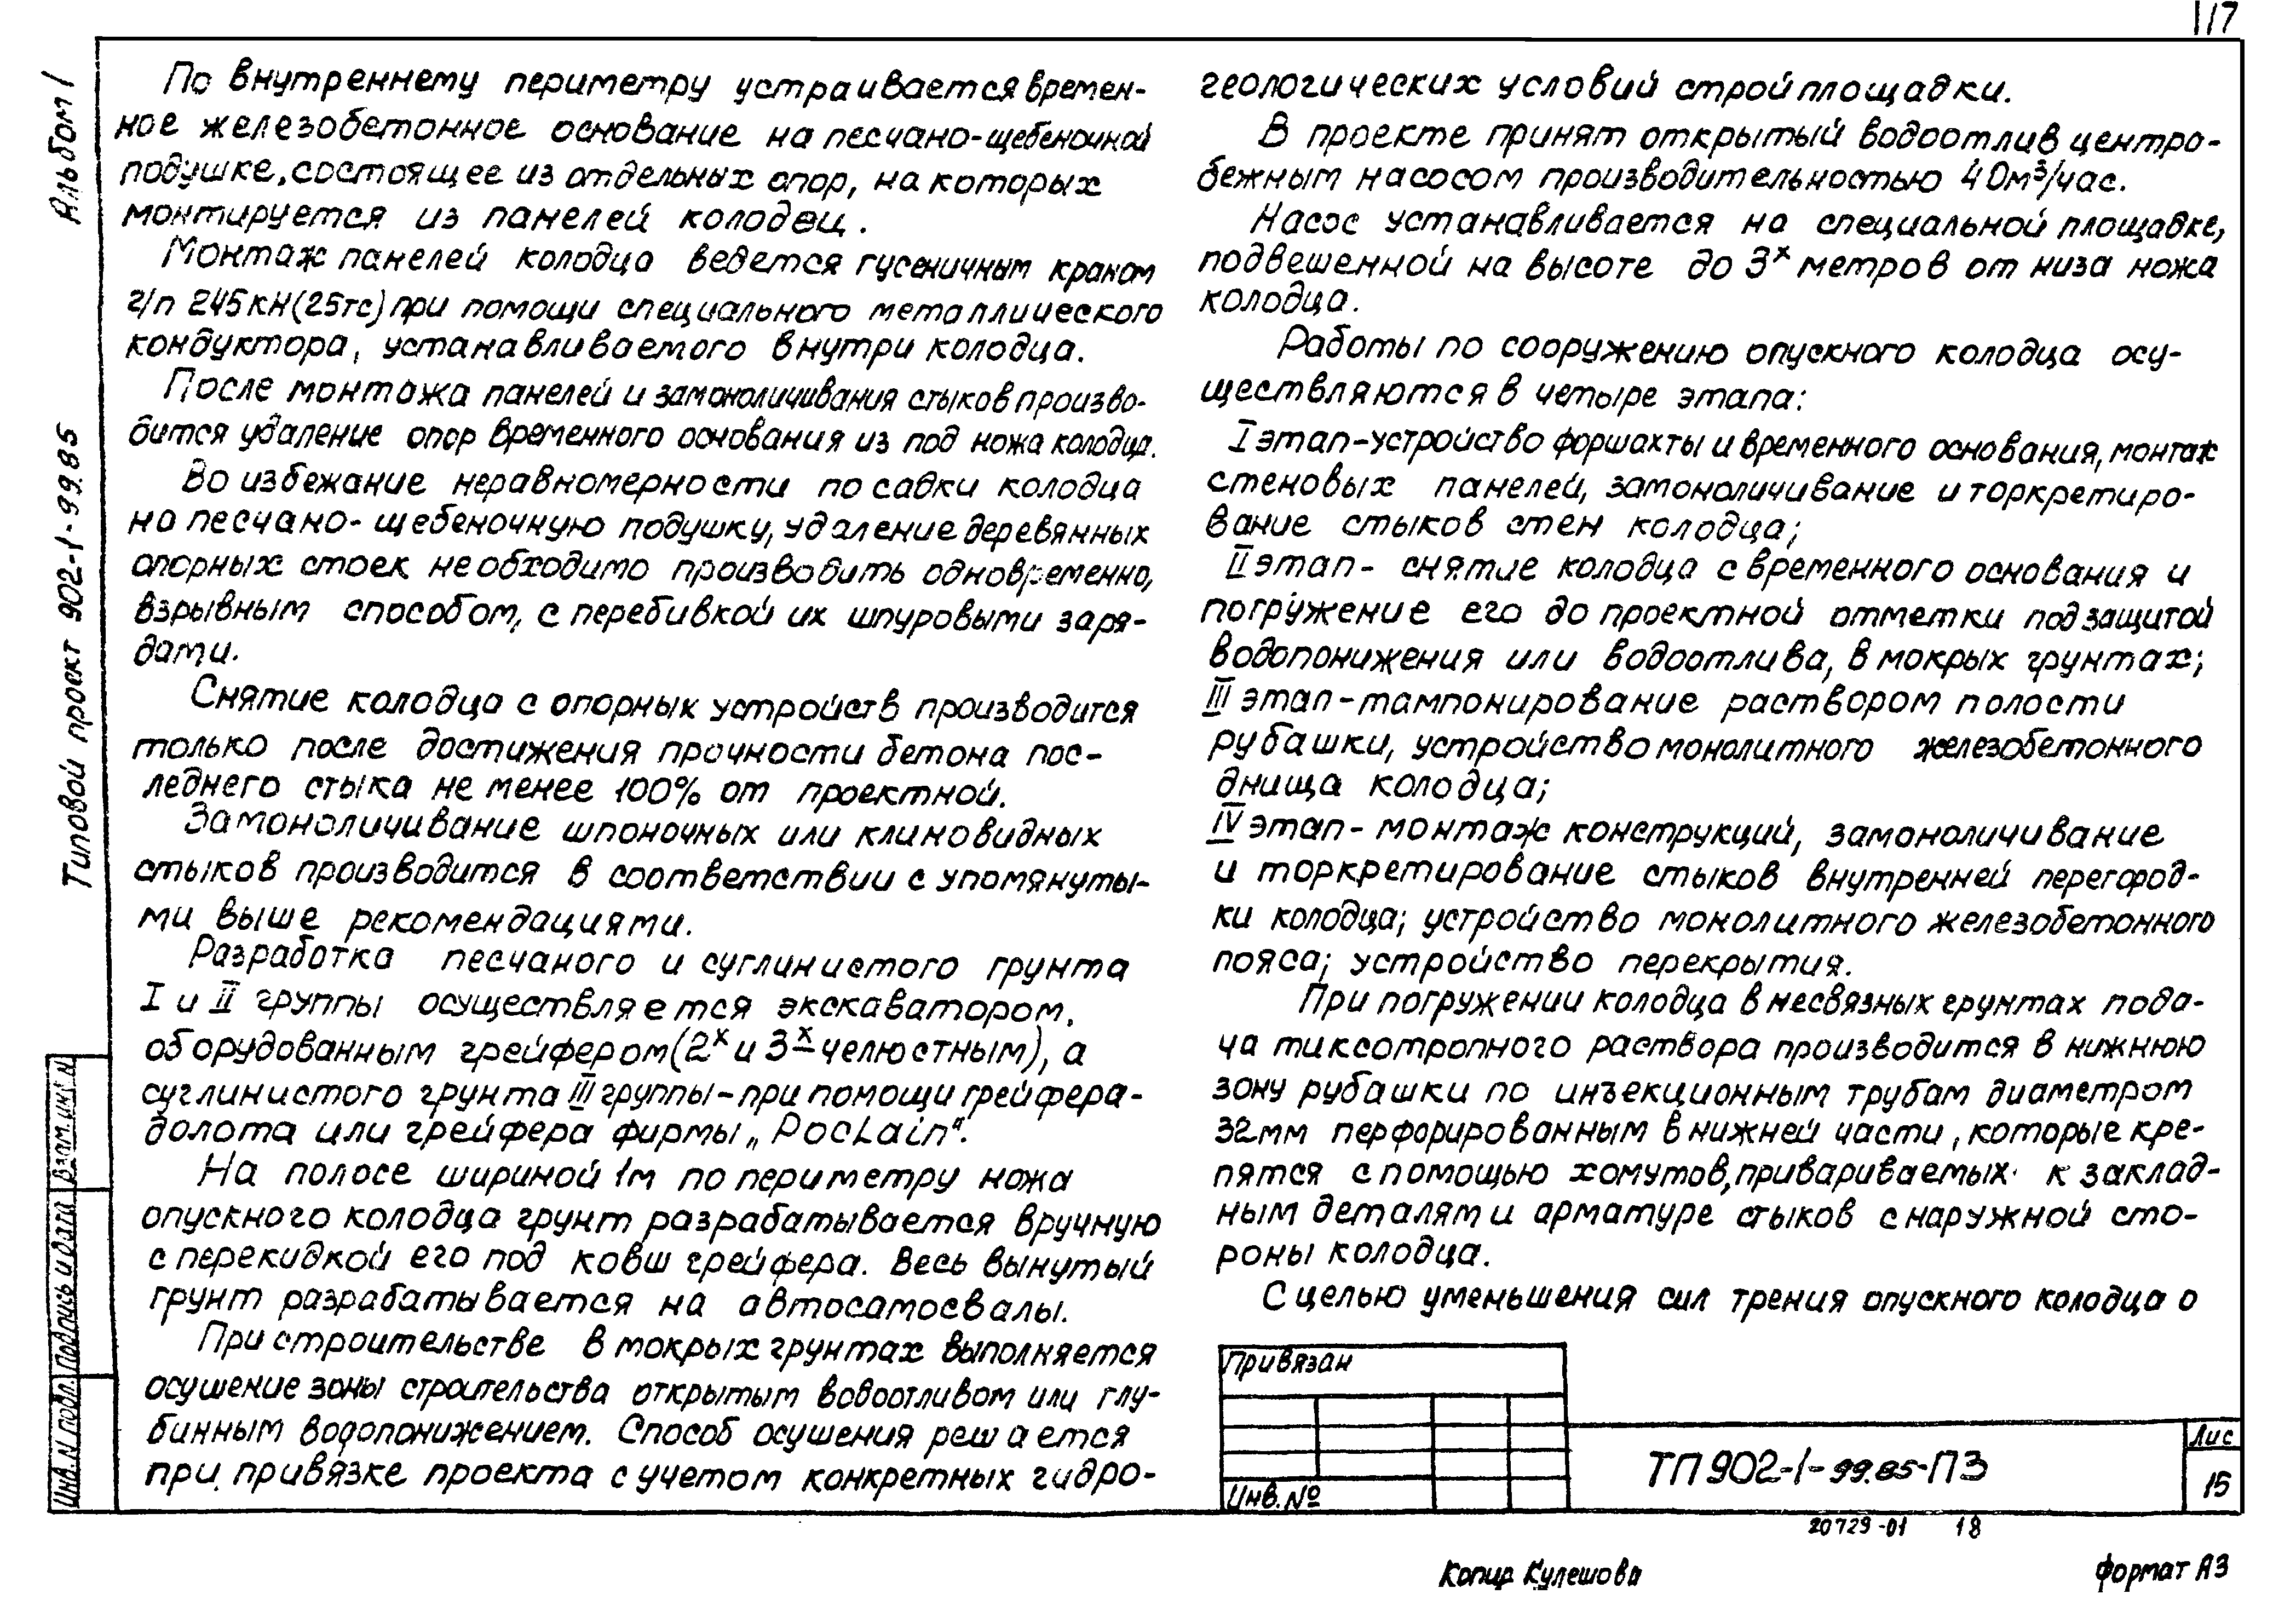 117
Альбом 1
Типовой проект 902-1-99.85
По внутреннему периметру устраивается времен-
ное железобетонное основание на песчано-щебеночной
подушке, состоящее из отдельных опор, на которых
монтируется из панелей колодец.
Монтаж панелей колодца ведется гусеничным краном
г/п 245кн(25тс) при помощи специального металлического
кондуктора, устанавливаемого внутри колодца.
После монтажа панелей и замоноличивания стыков произво-
дится удаление опор временного основания из под ножа колодца.
Во избежание неравномерности посадки колодца
на песчано-щебеночную подушку, удаление деревянных
опорных стоек необходимо производить одновременно,
взрывным способом, с перебивкой их шпуровыми заря-
дами.
Снятие колодца с опорных устройств производится
только после достижения прочности бетона пос-
леднего стыка не менее 100% от проектной.
Замоноличивание шпоночных или клиновидных
стыков производится в соответствии с упомянуты-
ми выше рекомендациями.
Разработка песчаного и суглинистого грунта
I и II группы осуществляется экскаватором,
оборудованным грейфером (2х и 3х челюстным), а
суглинистого грунта III группы - при помощи грейфера-
долота или грейфера фирмы „Poclain".
На полосе шириной 1м по периметру ножа
опускного колодца грунт разрабатывается вручную
с перекидкой его под ковш грейфера. Весь вынутый
грунт разрабатывается на автосамосвалы.
При строительстве в мокрых грунтах выполняется
осушение зоны строительства открытым водоотливом или глу-
бинным водопонижением. Способ осушения решается
при привязке проекта с учетом конкретных гидро-
геологических условий строй площадки.
В проекте принят открытый водоотлив центро-
бежным насосом производительностью 40м³/час.
Насос устанавливается на специальной площадке,
подвешенной на высоте до 3х метров от низа ножа
колодца.
Работы по сооружению опускного колодца осу-
ществляются в четыре этапа:
I этап - устройство форшахты и временного основания, монтаж
стеновых панелей, замоноличивание и торкретиро-
вание стыков стен колодца;
II этап - снятие колодца с временного основания и
погружение его до проектной отметки под защитой
водопонижения или водоотлива, в мокрых грунтах;
III этап - тампонирование раствором полости
рубашки, устройство монолитного железобетонного
днища колодца;
IV этап - монтаж конструкций, замоноличивание
и торкретирование стыков внутренней перегород-
ки колодца; устройство монолитного железобетонного
пояса; устройство перекрытия.
При погружении колодца в несвязных грунтах пода-
ча тиксотропного раствора производится в нижнюю
зону рубашки по инъекционным трубам диаметром
32мм перфорированным в нижней части, которые кре-
пятся с помощью хомутов, привариваемых к заклад-
ным деталям и арматуре стыков с наружной сто-
роны колодца.
С целью уменьшения сил трения опускного колодца о
Взам. инв. N
Подпись и дата
Инв. N подл.
Привязан
Инв. №
ТП 902-1-99.85-ПЗ
Лис
15
20729-01 18
Копир Кулешова
формат А3